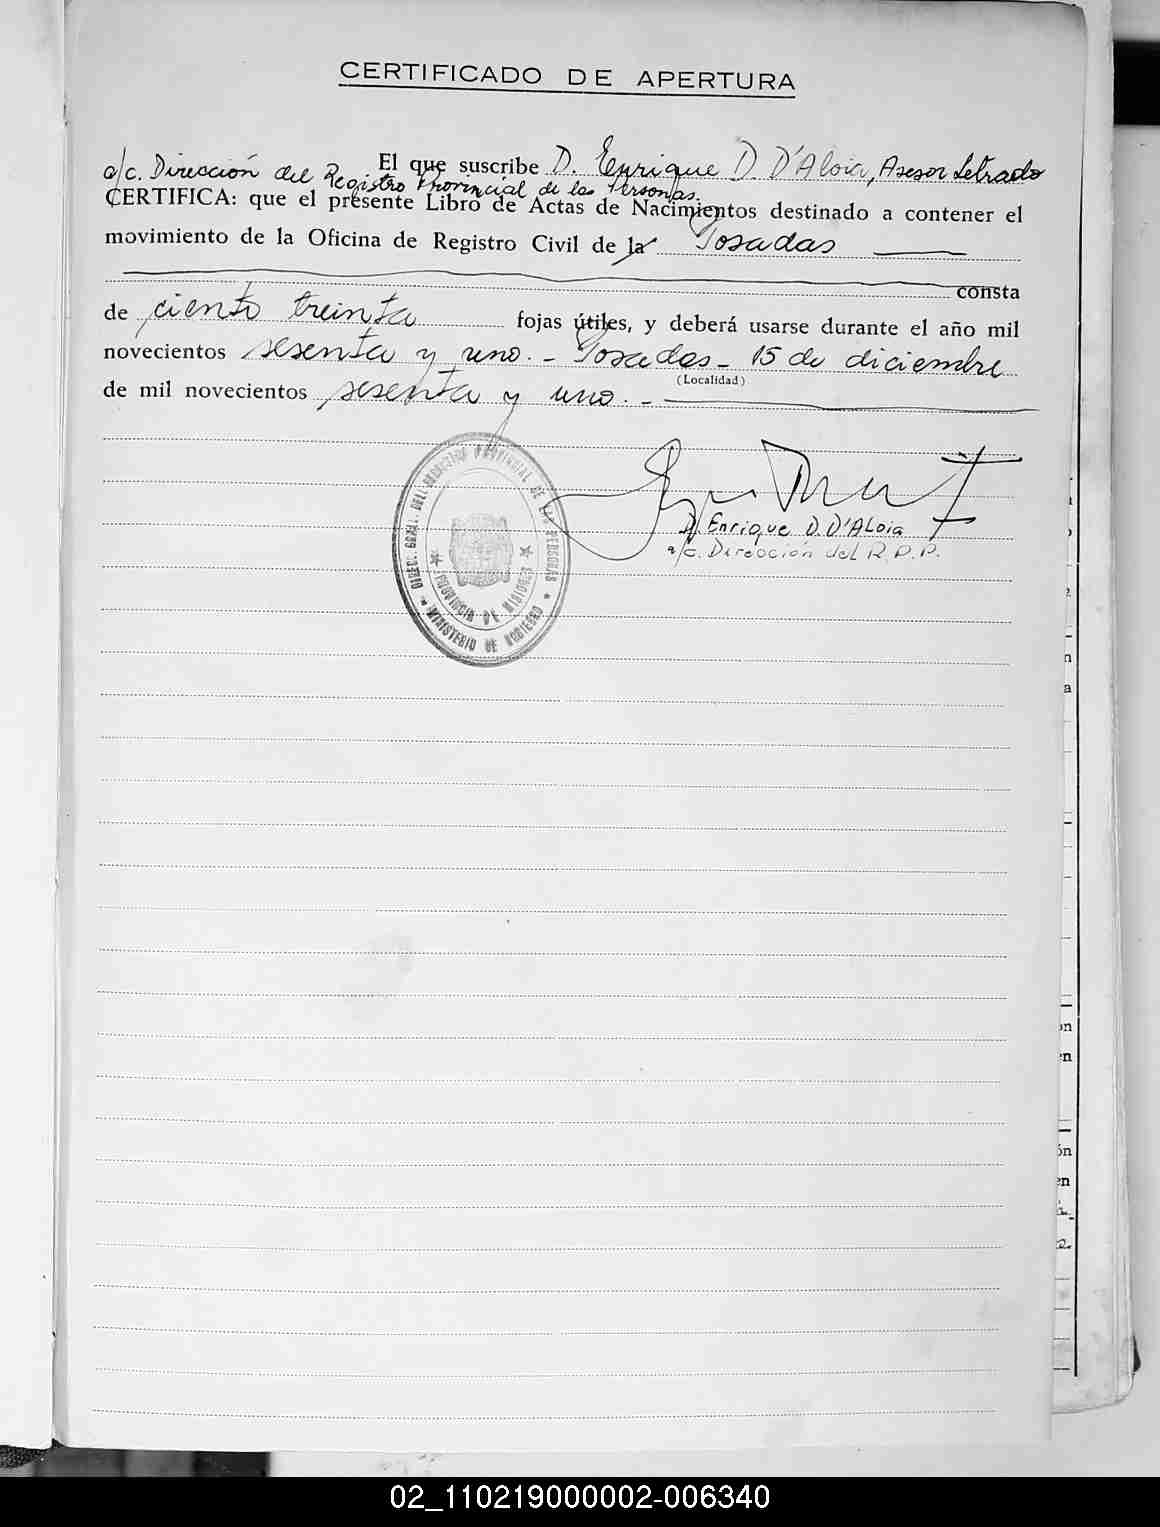 CERTIFICADO DE APERTURA
El que suscribe D. Enrique D. D'Aloia, Asesor Letrado
a/c. Dirección del Registro Provincial de las Personas.
CERTIFICA: que el presente Libro de Actas de Nacimientos destinado a contener el
movimiento de la Oficina de Registro Civil de la Posadas
consta
de ciento treinta fojas útiles, y deberá usarse durante el año mil
novecientos sesenta y uno. - Posadas - 15 de diciembre
(Localidad)
de mil novecientos sesenta y uno. -
D. Enrique D. D'Aloia
a/c. Dirección del R. P. P.
DIREC. GRAL. DEL REGISTRO PROVINCIAL DE LAS PERSONAS
PROVINCIA DE MISIONES
MINISTERIO DE GOBIERNO
02_110219000002-006340